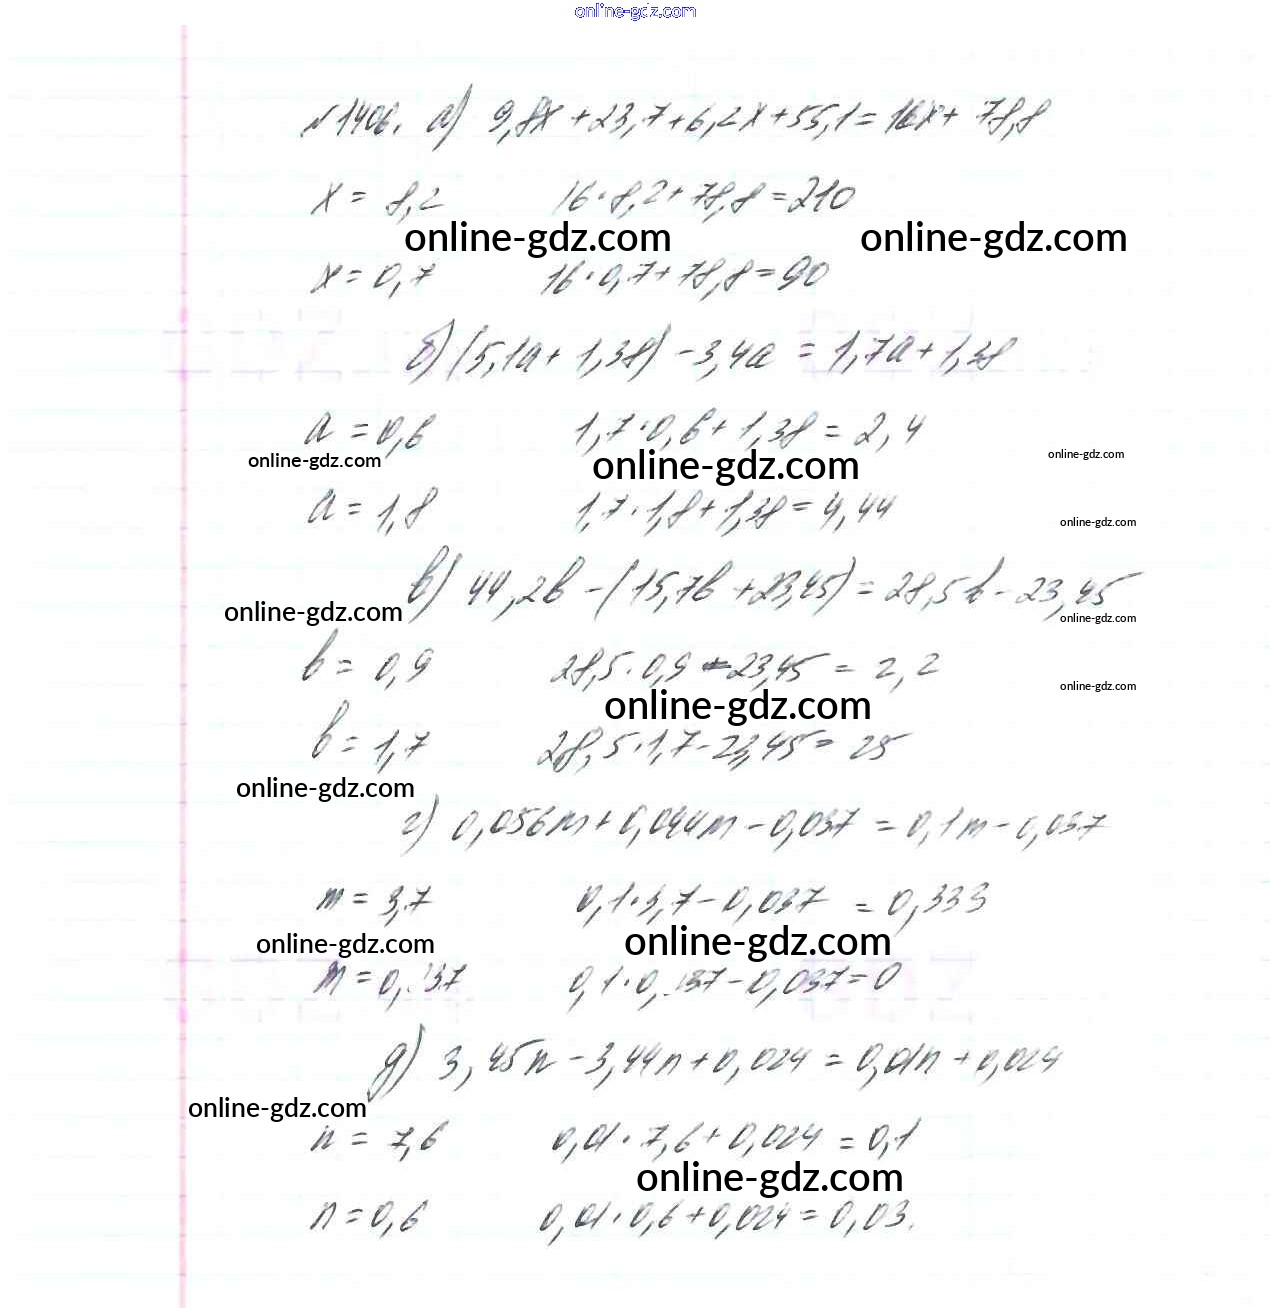 online-gdz.com
№1406. а) 9,8x + 23,7 + 6,2x + 55,1 = 16x + 78,8
x = 8,2 16·8,2 + 78,8 = 210
online-gdz.com online-gdz.com
x = 0,7 16·0,7 + 78,8 = 90
б) (5,1a + 1,38) - 3,4a = 1,7a + 1,38
a = 0,6 1,7·0,6 + 1,38 = 2,4
online-gdz.com online-gdz.com online-gdz.com
a = 1,8 1,7·1,8 + 1,38 = 4,44
online-gdz.com
в) 44,2b - (15,7b + 23,45) = 28,5b - 23,45
online-gdz.com online-gdz.com
b = 0,9 28,5·0,9 - 23,45 = 2,2
online-gdz.com
online-gdz.com
b = 1,7 28,5·1,7 - 23,45 = 25
online-gdz.com
г) 0,056m + 0,044m - 0,037 = 0,1m - 0,037
m = 3,7 0,1·3,7 - 0,037 = 0,333
online-gdz.com online-gdz.com
m = 0,37 0,1·0,37 - 0,037 = 0
д) 3,45n - 3,44n + 0,024 = 0,01n + 0,024
online-gdz.com
n = 7,6 0,01·7,6 + 0,024 = 0,1
online-gdz.com
n = 0,6 0,01·0,6 + 0,024 = 0,03.